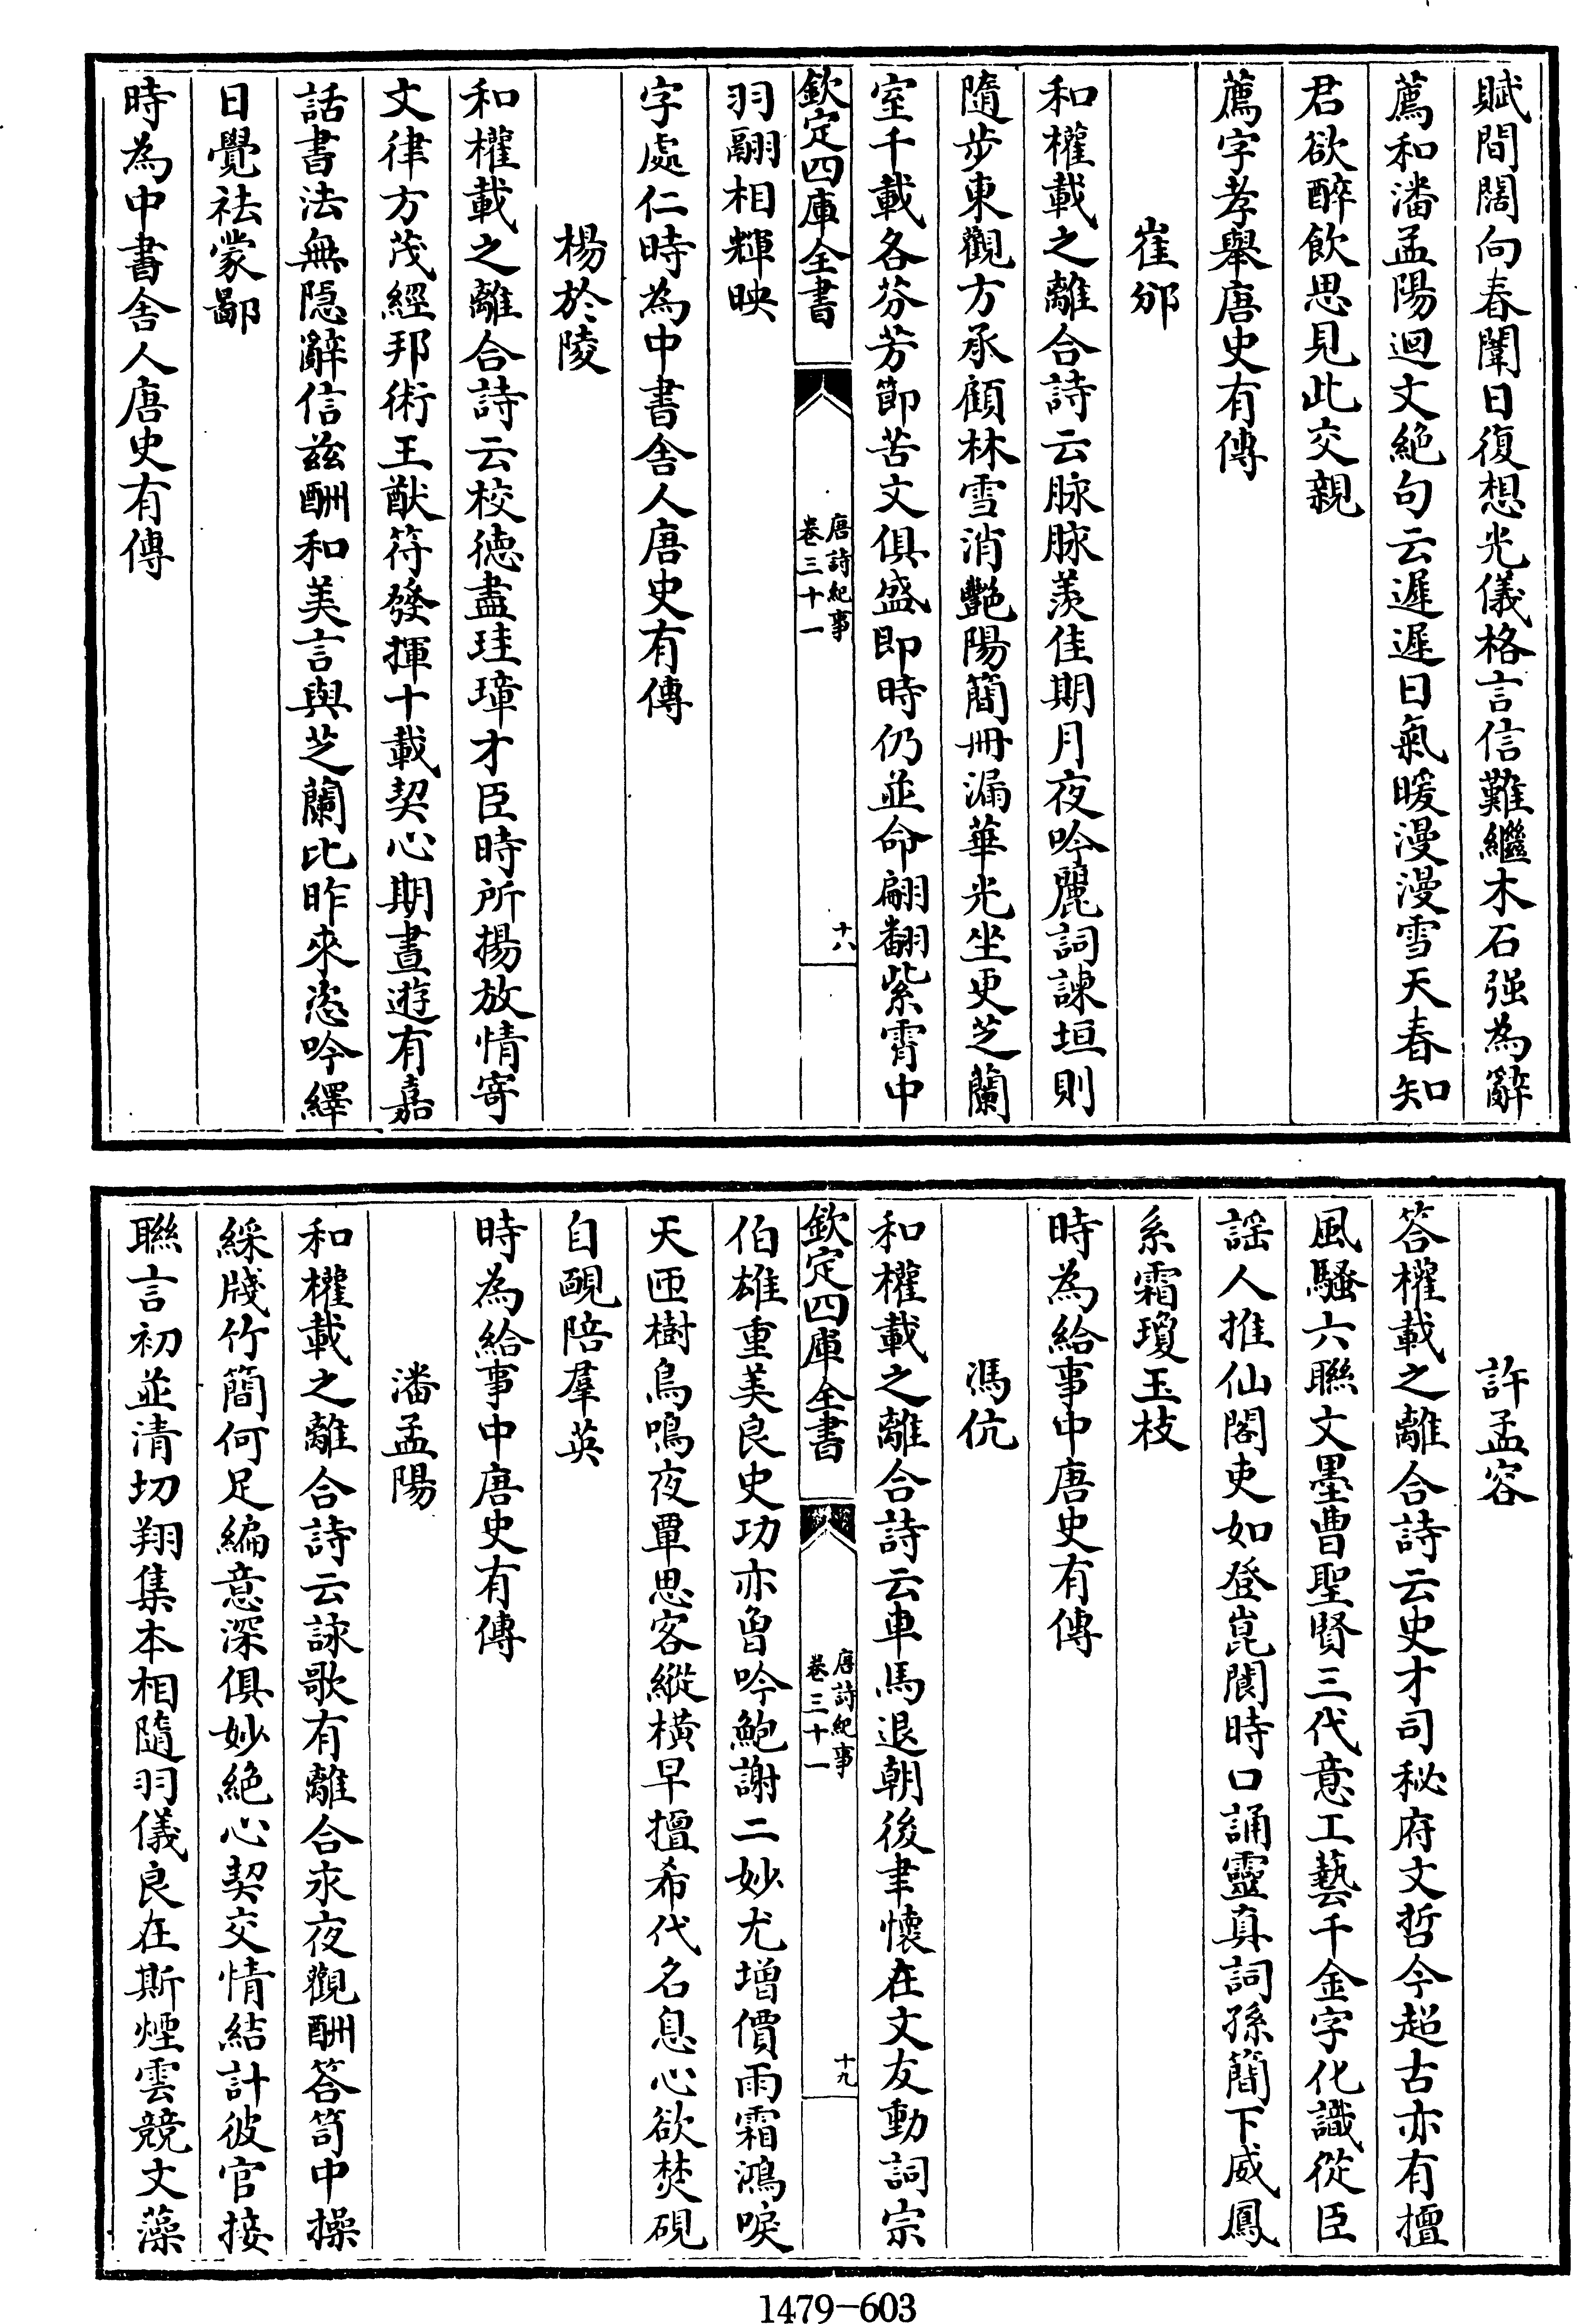 賦間闊向春闈日復想光儀格言信難繼木石强為辭
薦和潘孟陽迴文絶句云遲遲日氣暖漫漫雪天春知
君欲醉飲思見此交親
薦字孝舉唐史有傳
崔邠
和權載之離合詩云脉脉羨佳期月夜吟麗詞諫垣則
隨步東觀方承顧林雪消艷陽簡冊漏華光坐更芝蘭
室千載各芬芳節苦文俱盛即時仍並命翩翻紫霄中
欽定四庫全書
唐詩紀事
卷三十一
十八
羽翮相輝映
字處仁時為中書舍人唐史有傳
楊於陵
和權載之離合詩云校德盡珪璋才臣時所揚放情寄
文律方茂經邦術王猷符發揮十載契心期晝遊有嘉
話書法無隱辭信兹酬和美言與芝蘭比昨來恣吟繹
日覺祛蒙鄙
時為中書舍人唐史有傳
許孟容
答權載之離合詩云史才司秘府文哲今超古亦有擅
風騷六聯文墨曹聖賢三代意工藝千金字化識從臣
謡人推仙閣吏如登崑閬時口誦靈真詞孫簡下威鳳
系霜瓊玉枝
時為給事中唐史有傳
馮伉
和權載之離合詩云車馬退朝後聿懷在文友動詞宗
欽定四庫全書
唐詩紀事
卷三十一
十九
伯雄重美良史功亦曾吟鮑謝二妙尤增價雨霜鴻唳
天匝樹鳥鳴夜覃思客縱横早擅希代名息心欲焚硯
自靦陪羣英
時為給事中唐史有傳
潘孟陽
和權載之離合詩云詠歌有離合永夜觀酬答笥中操
綵牋竹簡何足編意深俱妙絶心契交情結計彼官接
聯言初並清切翔集本相隨羽儀良在斯煙雲競文藻
1479-603